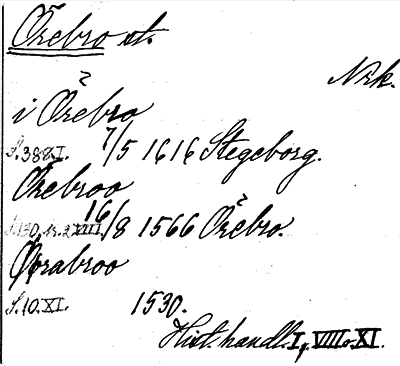 Örebro st.
Nrk.
i Örebro
S. 388.I. 7/5 1616 Stegeborg.
Örebroo
S. 130, nr. 2 VIII. 16/8 1566 Örebro.
Ørabroo
S. 10. XI. 1530.
Hist. handl. I, VIII o. XI.